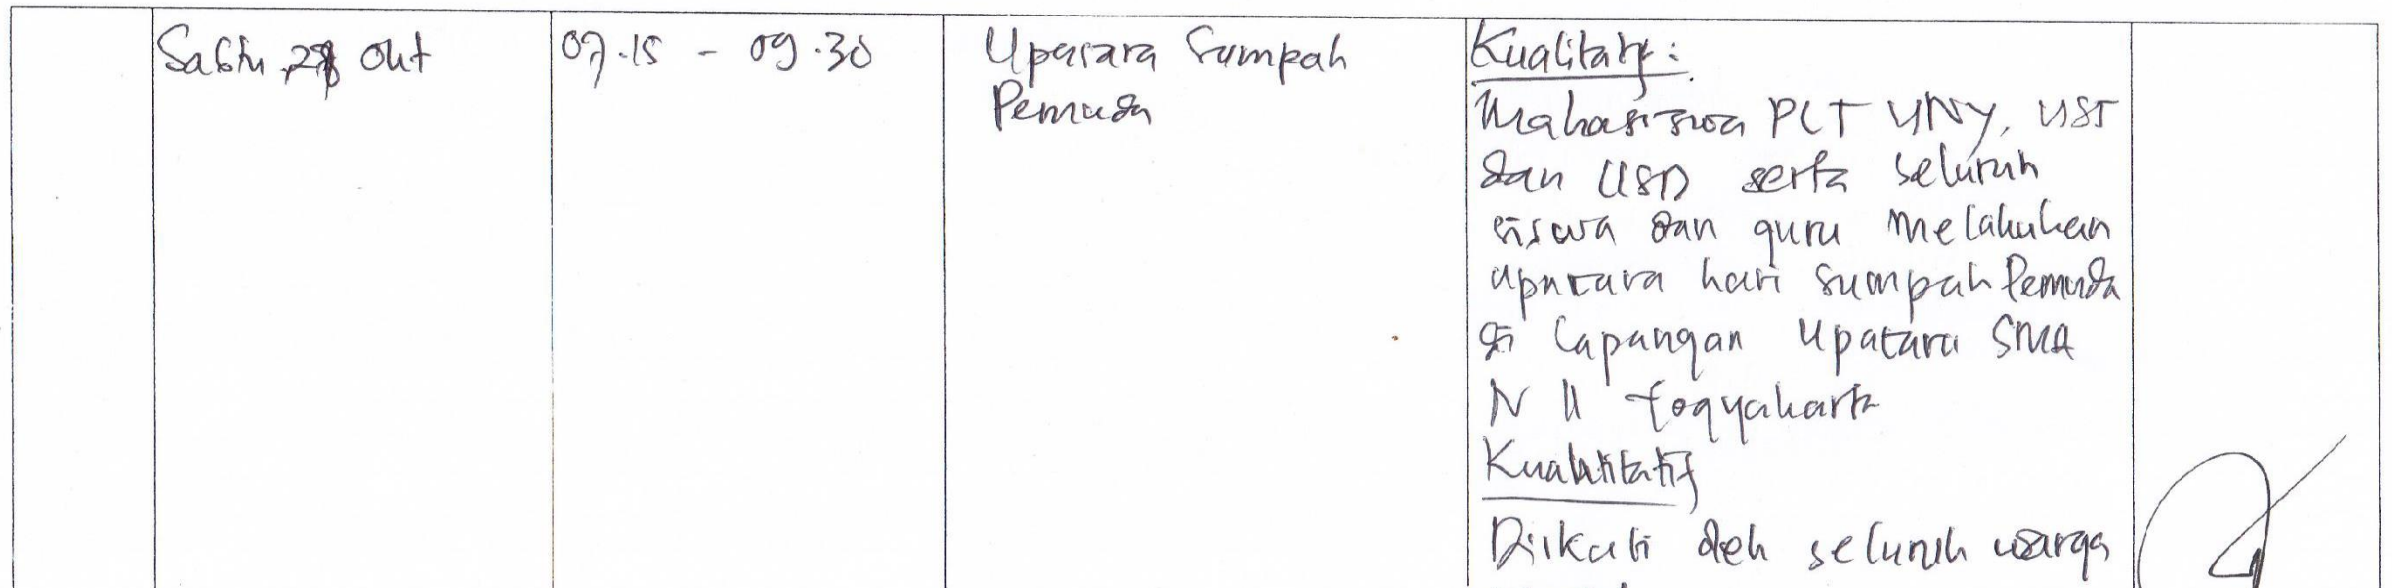 Sabtu, 28 Okt
07.15 - 09.30
Upacara Sumpah
Pemuda
Kualitatif :
Mahasiswa PLT UNY, UST
dan USD serta seluruh
siswa dan guru melakukan
upacara hari Sumpah Pemuda
di lapangan upacara SMA
N 11 Yogyakarta
Kuantitatif
Diikuti oleh seluruh warga